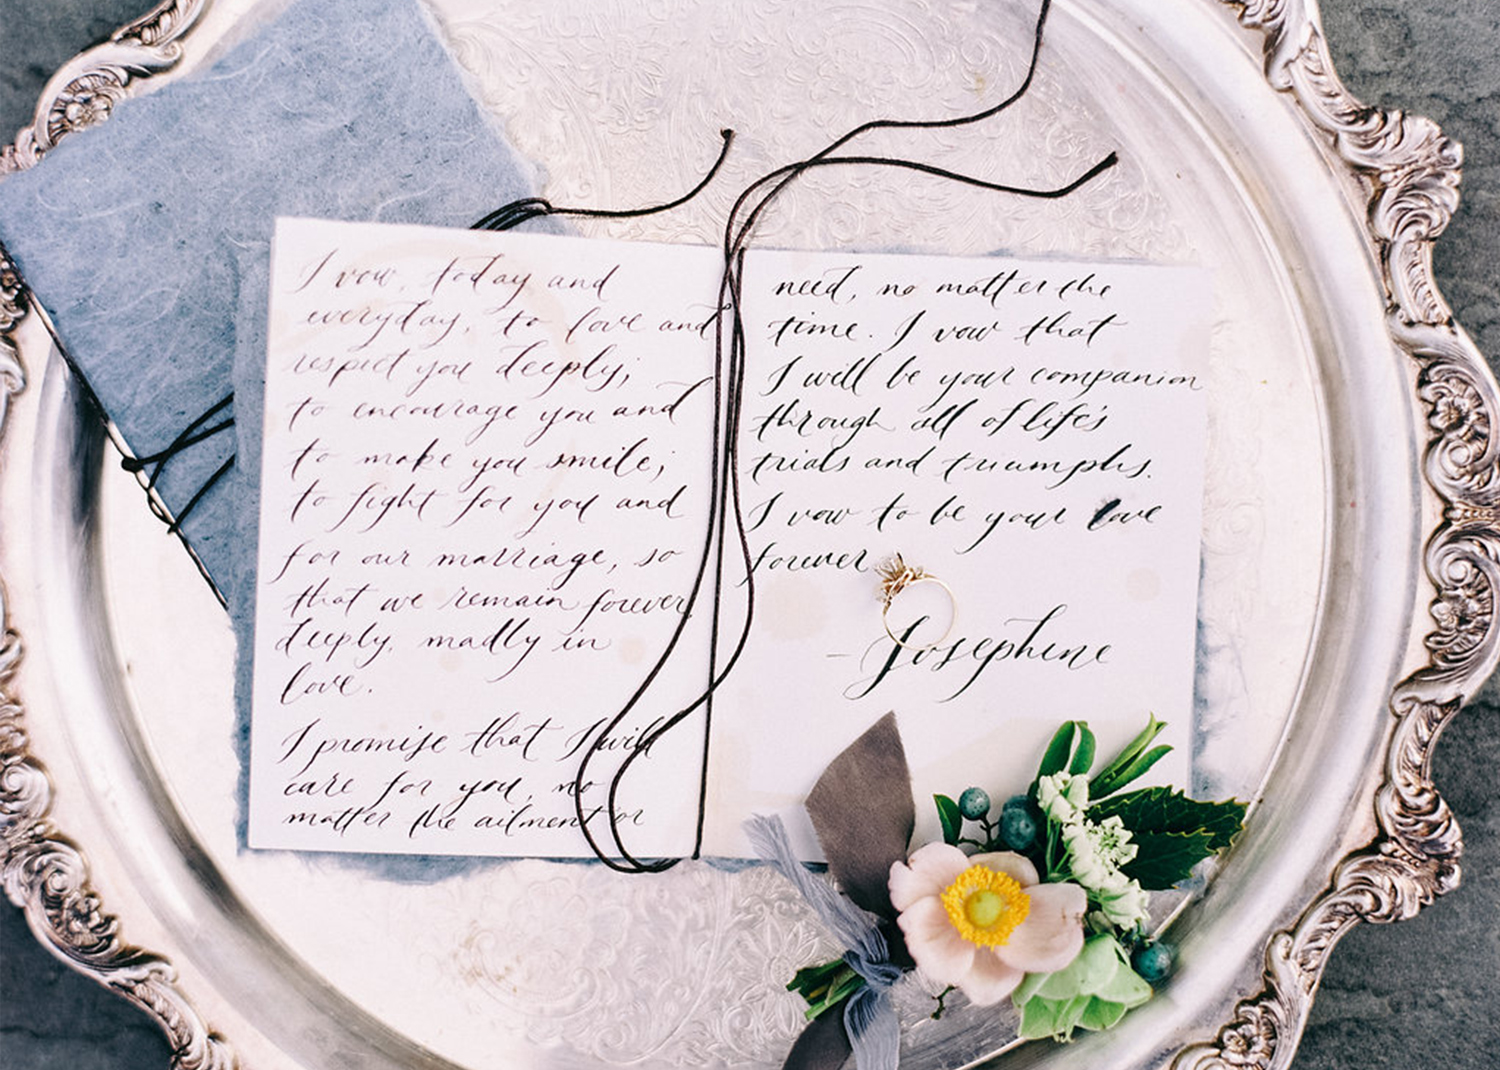 I vow, today and
everyday, to love and
respect you deeply;
to encourage you and
to make you smile;
to fight for you and
for our marriage, so
that we remain forever,
deeply, madly in
love.
I promise that I will
care for you, no
matter the ailment or
need, no matter the
time. I vow that
I will be your companion
through all of life's
trials and triumphs.
I vow to be your love
forever
- Josephine